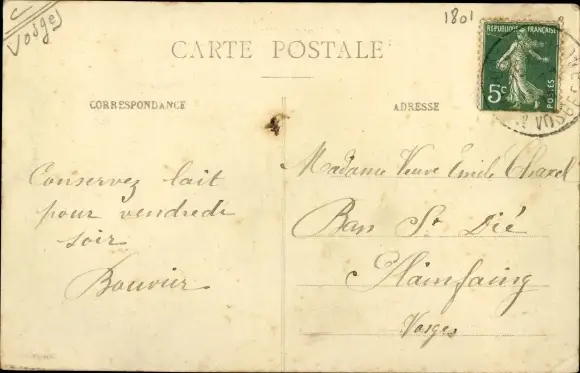 Vosges
1801
CARTE POSTALE
REPUBLIQUE FRANÇAISE
5c
POSTES
VOSGES
CORRESPONDANCE
ADRESSE
Conservez lait
pour vendredi
soir
Bouvier
Madame Veuve Emile
Ban St Dié
Plainfaing
Vosges